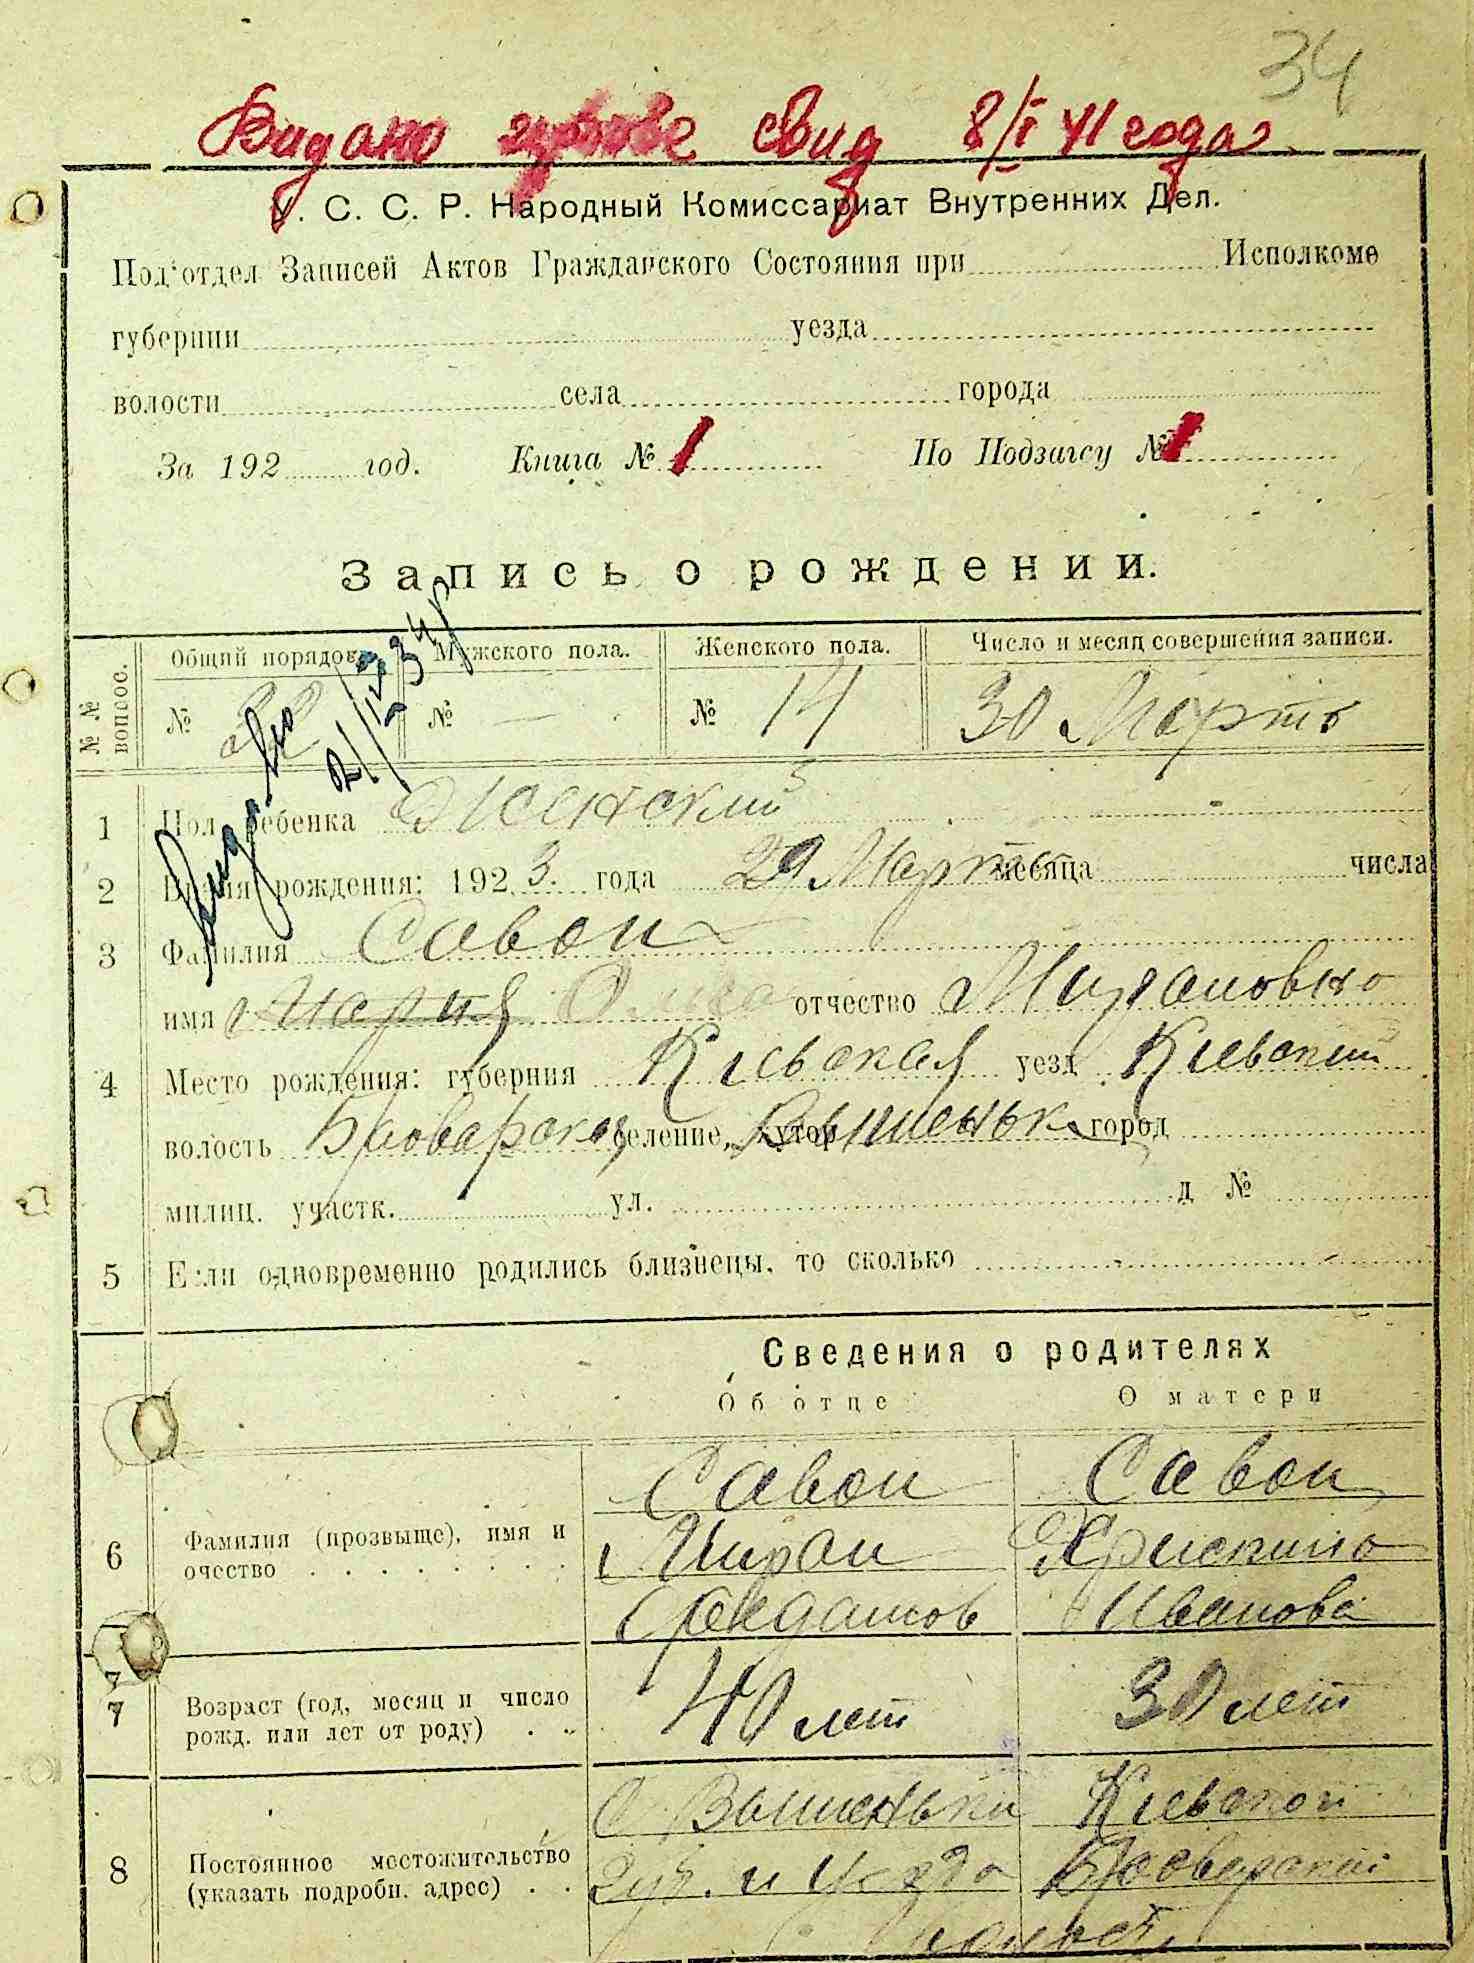 34
Видано свид 8/I 41 года
У. С. С. Р. Народный Комиссариат Внутренних Дел.
Подʻотдел Записей Актов Гражданского Состояния при Исполкоме
губернии уезда
волости села города
За 192 год. Книга № 1 По Подзагсу № 1
Запись о рождении.
№ № вопрос. Общий порядок. Мужского пола. Женского пола. Число и месяц совершения записи.
№ 32 № — № 14 30 Марта
1 Пол ребенка Женский
2 Время рождения: 1923. года 29 Марта месяца числа
3 Фамилия Савон
имя Мария отчество Мироновна
4 Место рождения: губерния Киевская уезд Киевский
волость Броварская селение, хутор Вышеньки город
милиц. участк. ул. д №
5 Если одновременно родились близнецы, то сколько
Сведения о родителях
Об отце О матери
Савон Савон
6 Фамилия (прозвыще), имя и очество Мирон Христина
Иванова
7 Возраст (год, месяц и число рожд. или лет от роду) 40 лет 30 лет
С. Вышеньки Киевской
8 Постоянное местожительство (указать подробн. адрес) губ. и Уезда Броварской
волост.